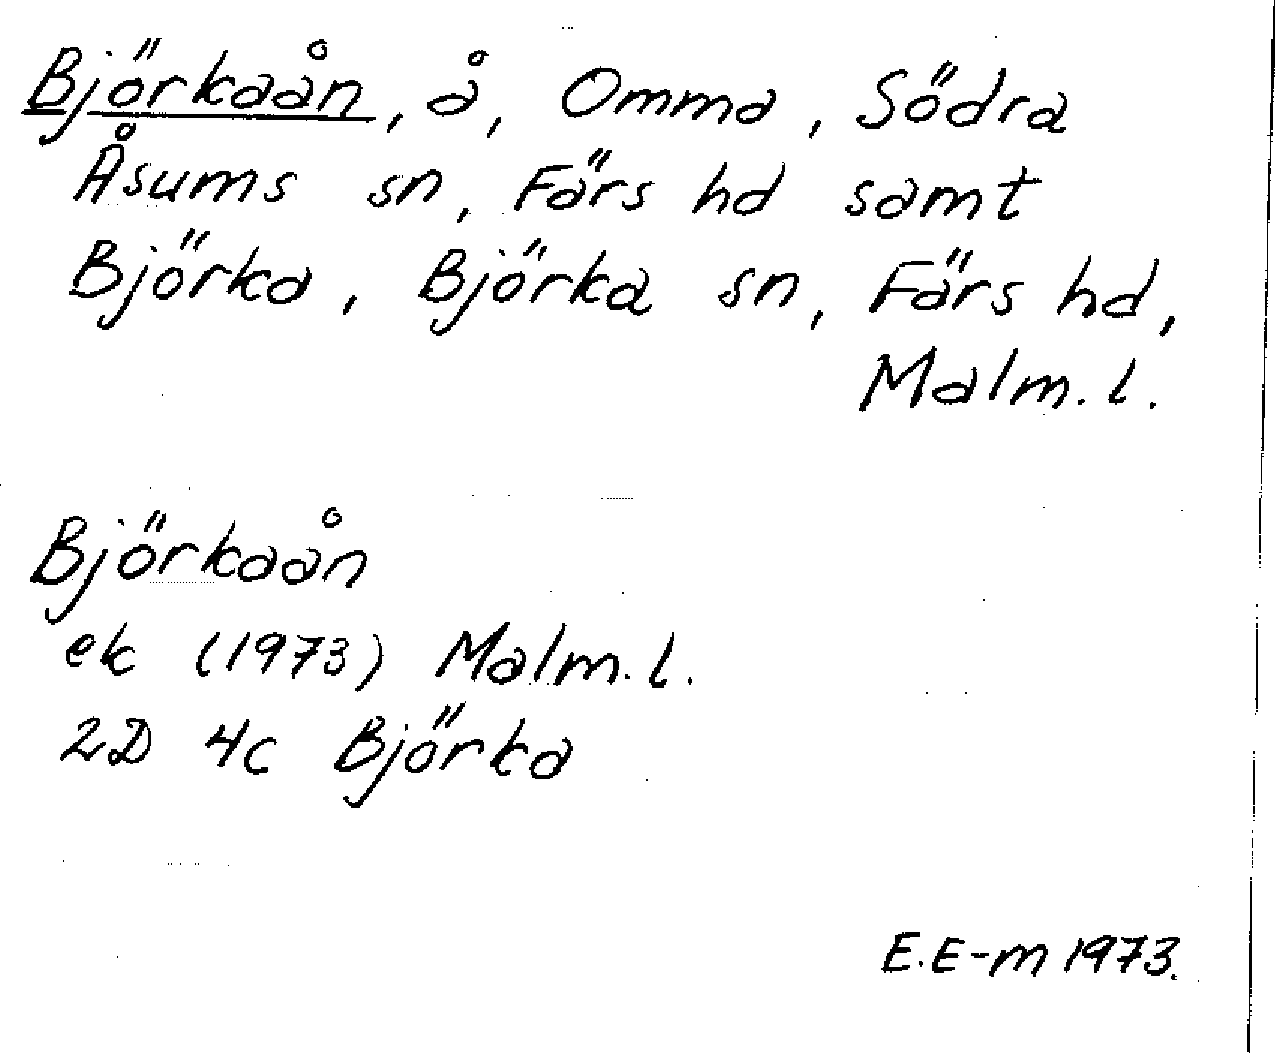 Björkaån, å, Omma, Södra
Åsums sn, Färs hd samt
Björka, Björka sn, Färs hd,
Malm. l.
Björkaån
ek (1973) Malm. l.
2D 4c Björka
E.E-m 1973.